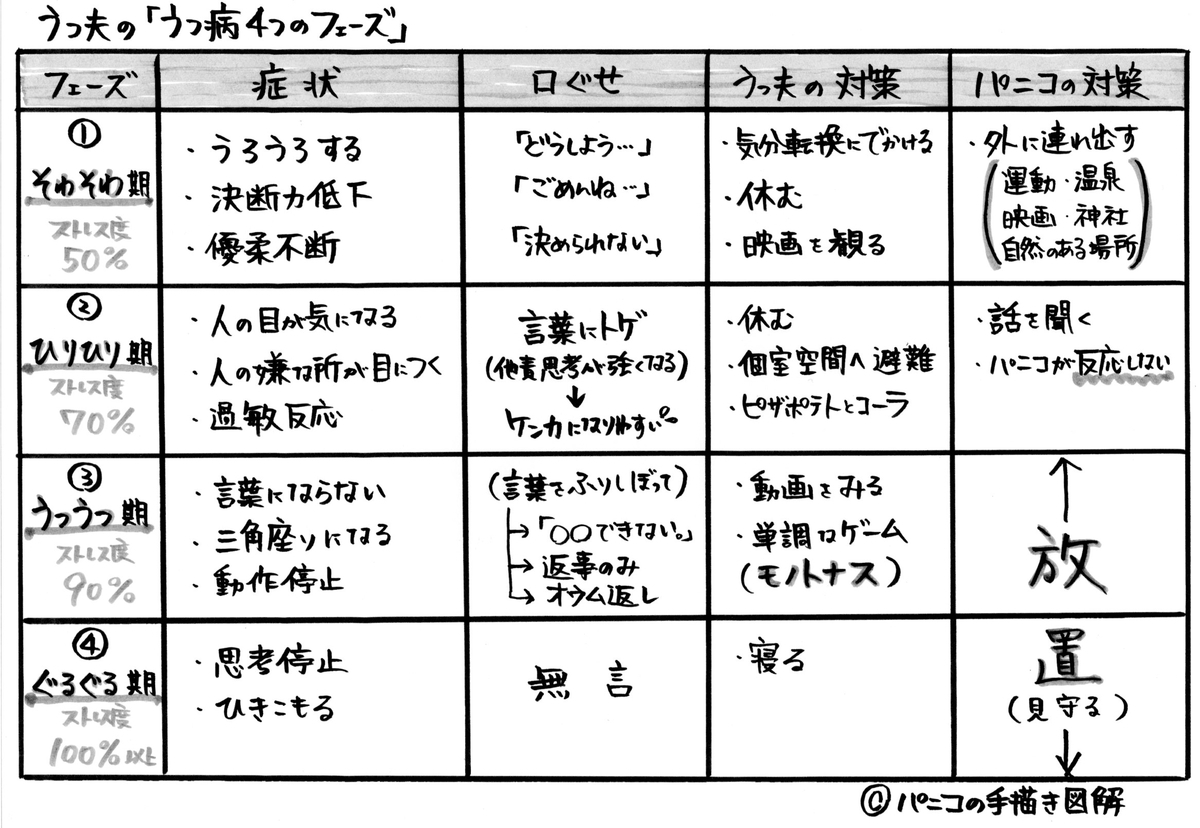 うつ夫の「うつ病4つのフェーズ」
フェーズ
症状
口ぐせ
うつ夫の対策
パニコの対策
①
そわそわ期
ストレス度
50%
・うろうろする
・決断力低下
・優柔不断
「どうしよう…」
「ごめんね…」
「決められない」
・気分転換にでかける
・休む
・映画を観る
・外に連れ出す
(運動・温泉
映画・神社
自然のある場所)
②
ひりひり期
ストレス度
70%
・人の目が気になる
・人の嫌な所が目につく
・過敏反応
言葉にトゲ
(他責思考が強くなる)
↓
ケンカになりやすい。
・休む
・個室空間へ避難
・ピザポテトとコーラ
・話を聞く
・パニコが反応しない
③
うつうつ期
ストレス度
90%
・言葉にならない
・三角座りになる
・動作停止
(言葉をふりしぼって)
→「○○できない。」
→返事のみ
→オウム返し
・動画をみる
・単調なゲーム
(モノトナス)
↑
放
④
ぐるぐる期
ストレス度
100%以上
・思考停止
・ひきこもる
無言
・寝る
置
(見守る)
↓
©パニコの手描き図解